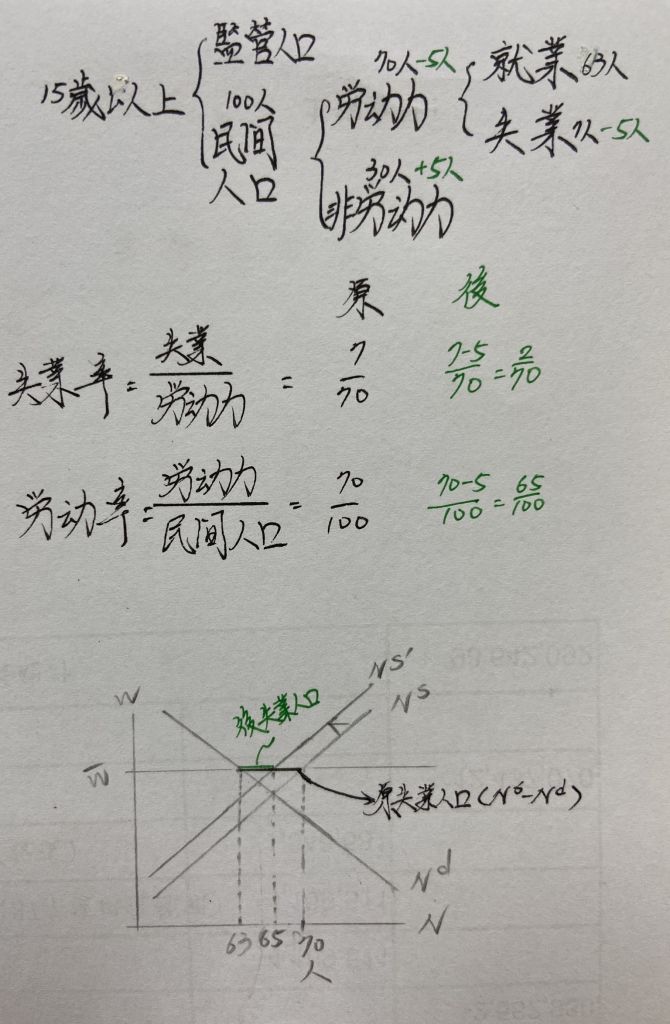 15歲以上
監管人口
100人
民間
人口
70人-5人
労动力
30人+5人
非労动力
就業 63人
失業 7人-5人
原 後
失業率 = 失業/労动力 = 7/70 7-5/70 = 2/70
労动率 = 労动力/民間人口 = 70/100 70-5/100 = 65/100
W
後失業人口
NS'
NS
W̅
原失業人口(Ns-Nd)
Nd
N
63 65 70
人